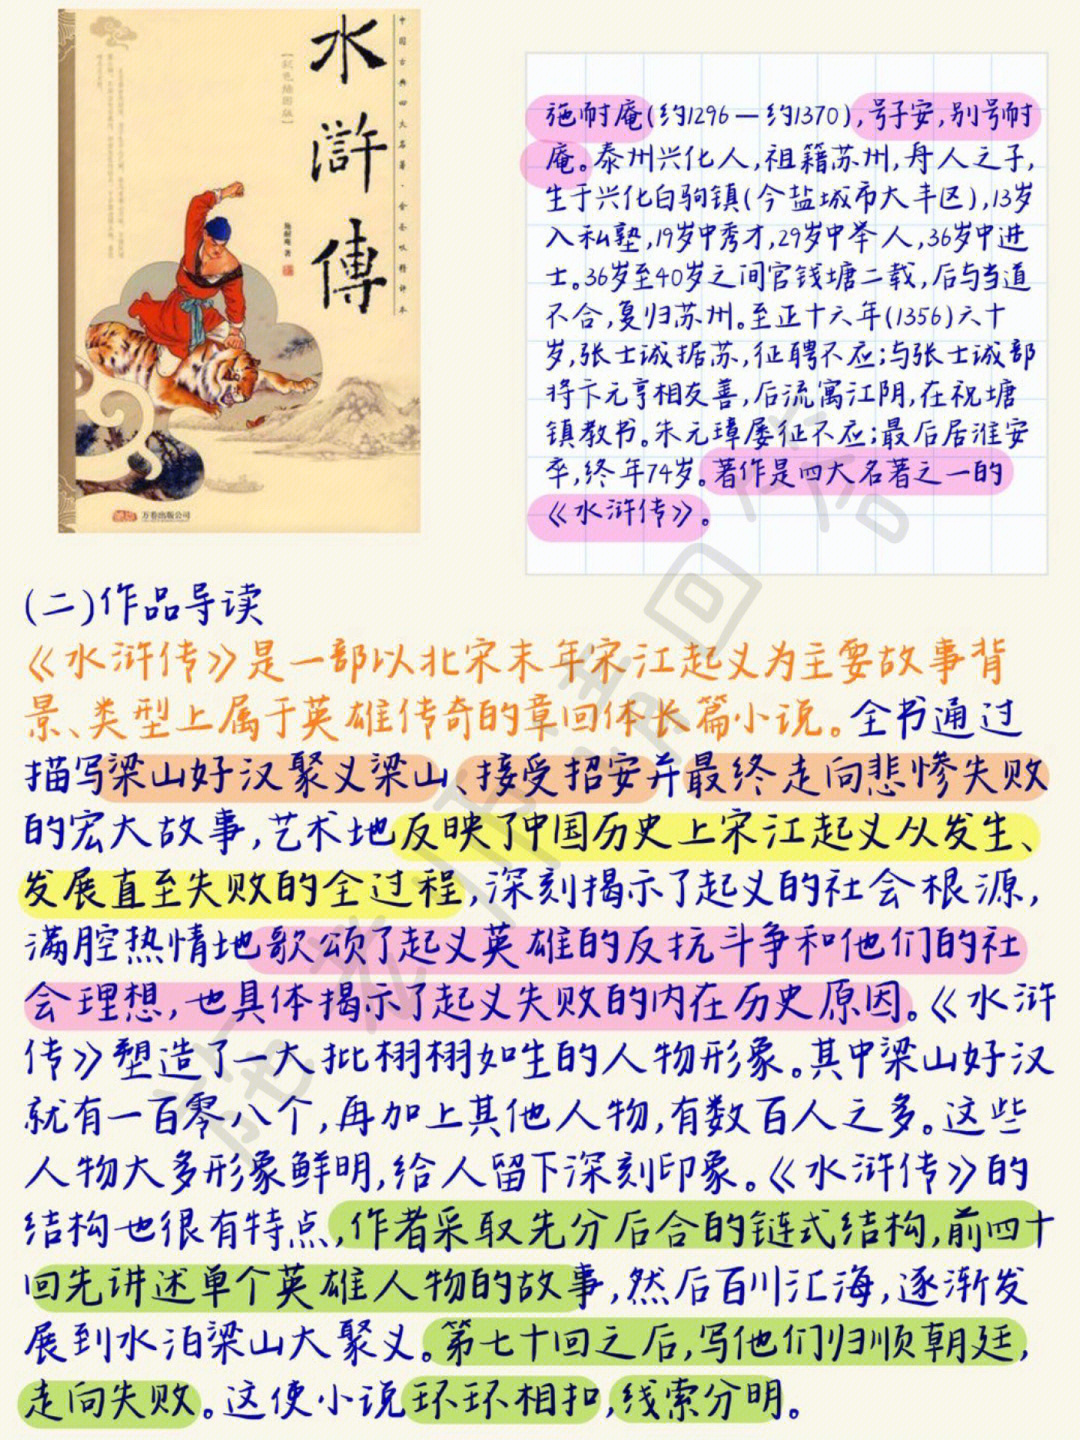 水
滸
傳
【彩色绘图版】
施耐庵 著
万卷出版公司
施耐庵(约1296—约1370),号子安,别号耐
庵。泰州兴化人,祖籍苏州,舟人之子,
生于兴化白驹镇(今盐城市大丰区),13岁
入私塾,19岁中秀才,29岁中举人,36岁中进
士。36岁至40岁之间官钱塘二载,后与当道
不合,复归苏州。至正十六年(1356)六十
岁,张士诚据苏,征聘不应;与张士诚部
将卞元亨相友善,后流寓江阴,在祝塘
镇教书。朱元璋屡征不应;最后居淮安
卒,终年74岁。著作是四大名著之一的
《水浒传》。
(二)作品导读
《水浒传》是一部以北宋末年宋江起义为主要故事背
景、类型上属于英雄传奇的章回体长篇小说。全书通过
描写梁山好汉聚义梁山、接受招安并最终走向悲惨失败
的宏大故事,艺术地反映了中国历史上宋江起义从发生、
发展直至失败的全过程,深刻揭示了起义的社会根源,
满腔热情地歌颂了起义英雄的反抗斗争和他们的社
会理想,也具体揭示了起义失败的内在历史原因。《水浒
传》塑造了一大批栩栩如生的人物形象。其中梁山好汉
就有一百零八个,再加上其他人物,有数百人之多。这些
人物大多形象鲜明,给人留下深刻印象。《水浒传》的
结构也很有特点,作者采取先分后合的链式结构,前四十
回先讲述单个英雄人物的故事,然后百川汇海,逐渐发
展到水泊梁山大聚义。第七十回之后,写他们归顺朝廷,
走向失败。这使小说环环相扣,线索分明。